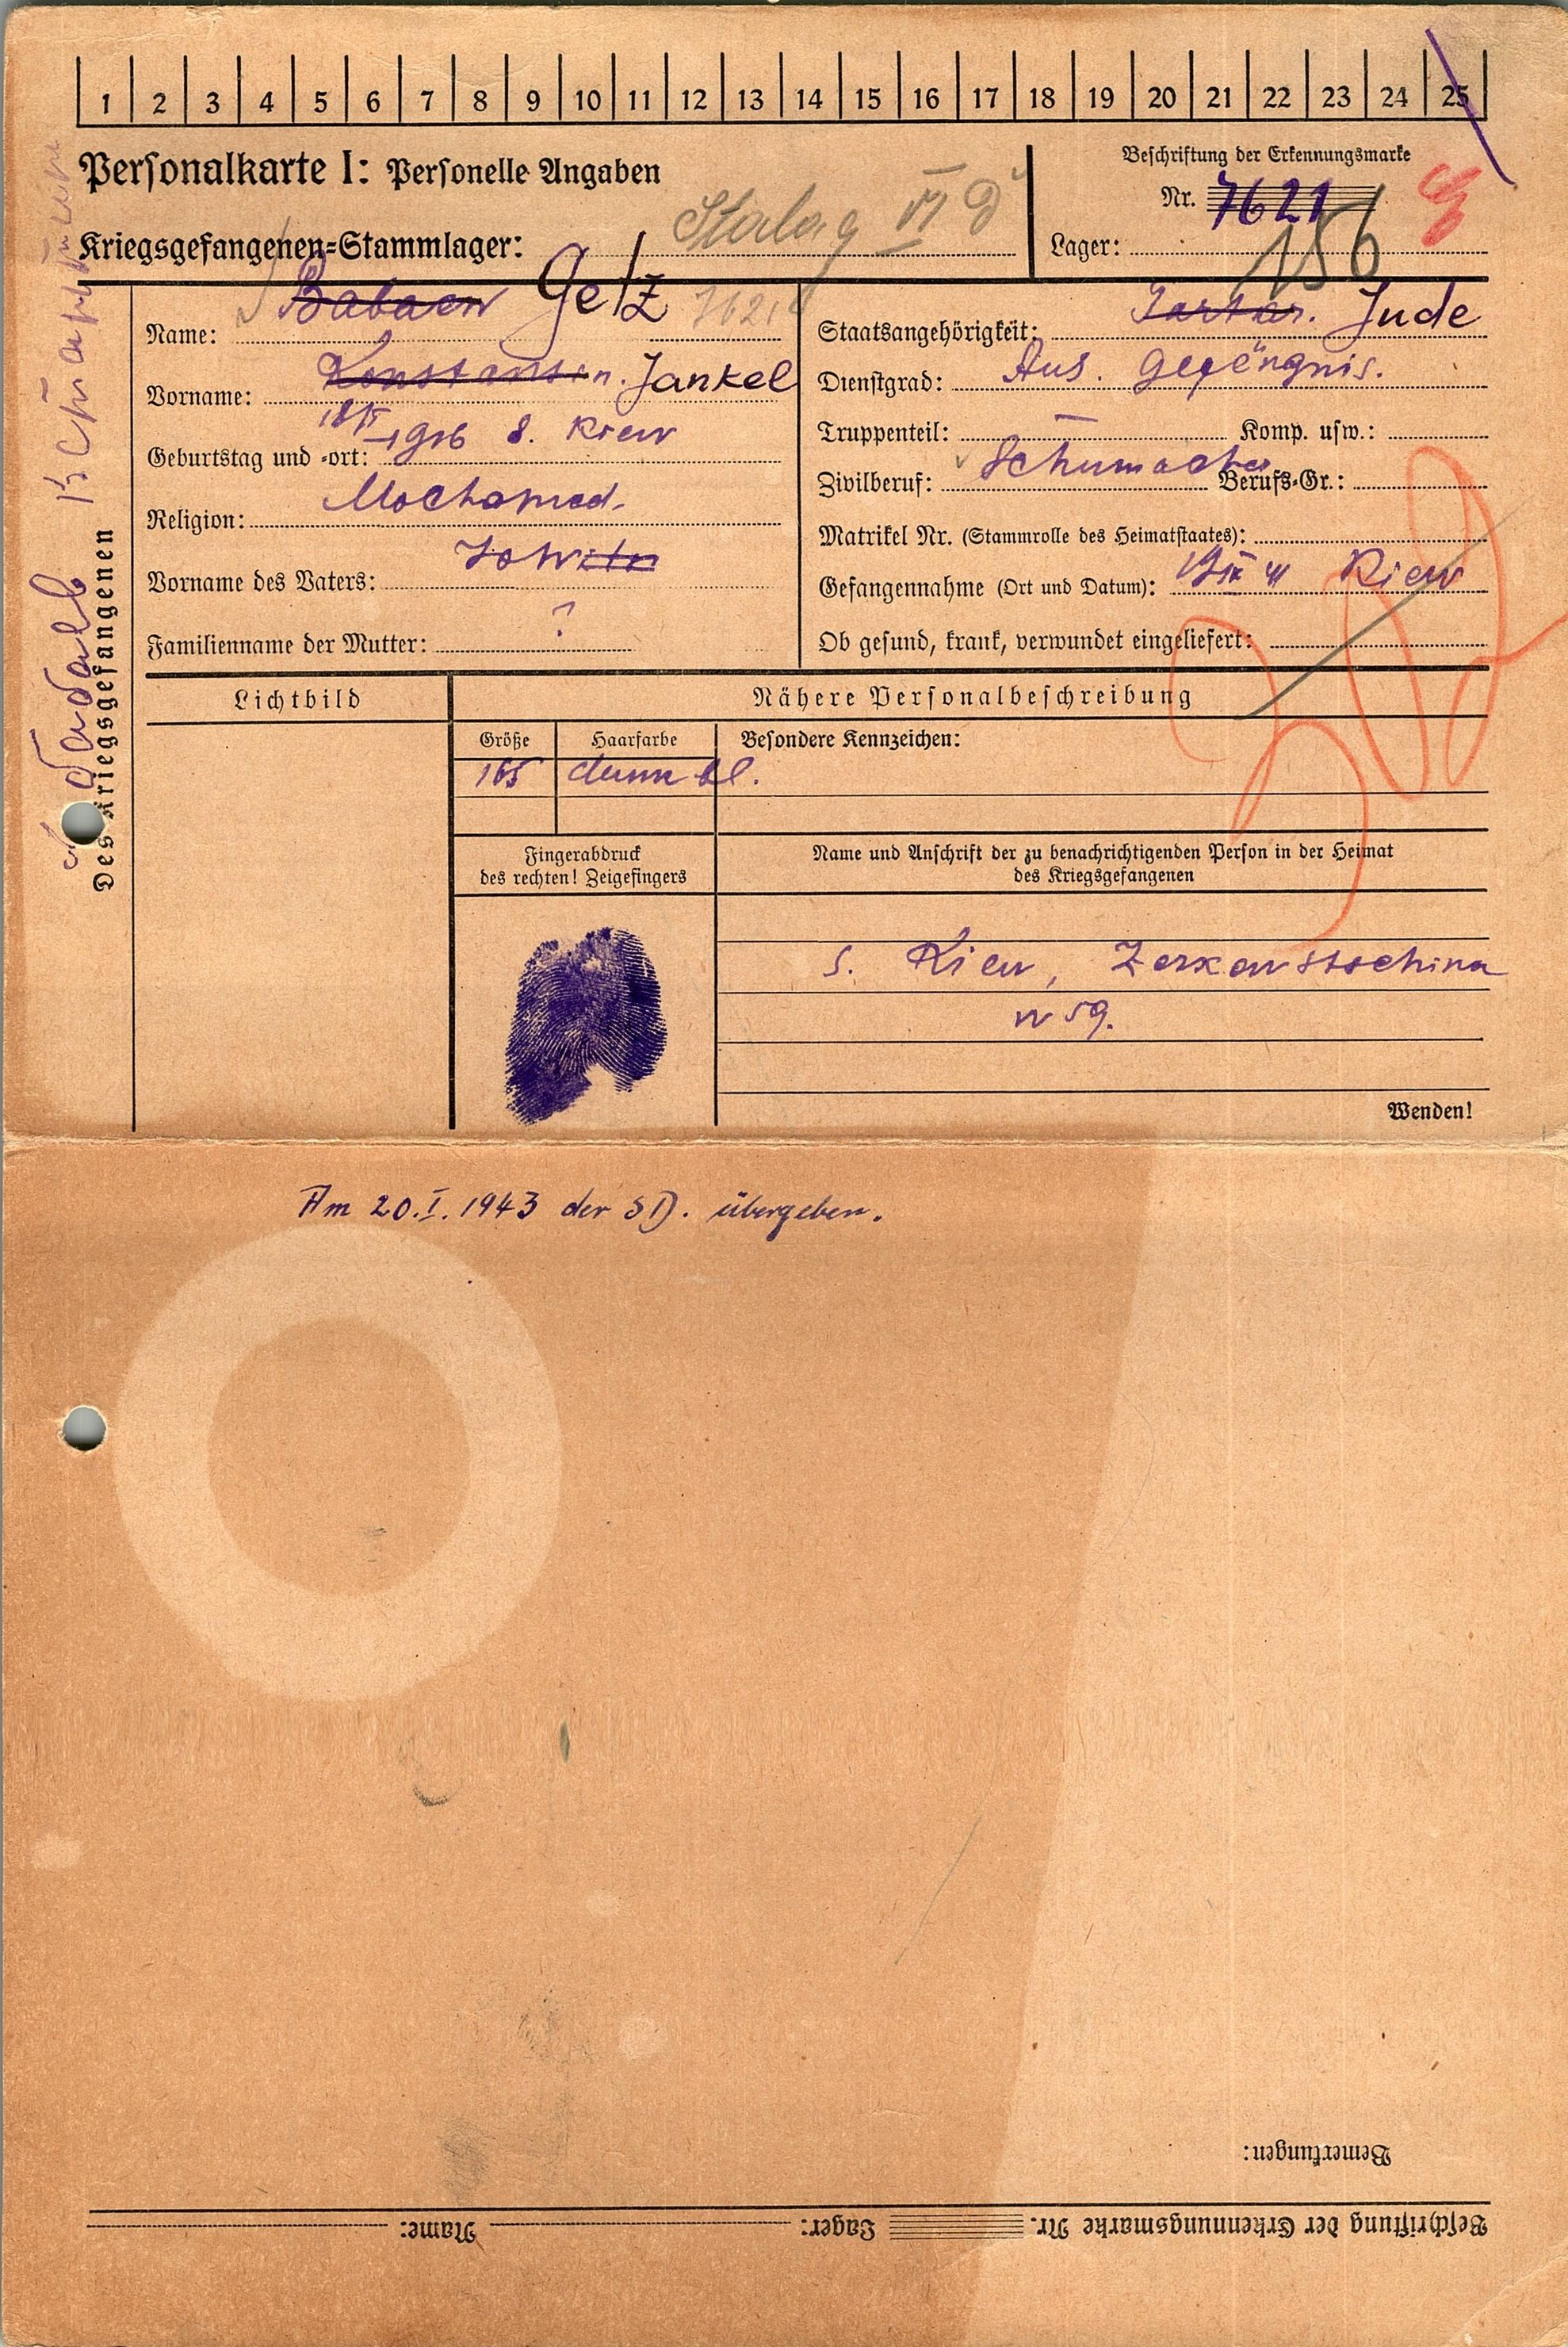 1 2 3 4 5 6 7 8 9 10 11 12 13 14 15 16 17 18 19 20 21 22 23 24 25
Personalkarte I: Personelle Angaben
Beschriftung der Erkennungsmarke
Nr. 7621
Kriegsgefangenen=Stammlager: Stalag VI D
Lager: 156
Des Kriegsgefangenen
Name: Babaew Getz 7621
Vorname: Konstantin. Jankel
Geburtstag und =ort: 1916 s. Kiew
Religion: Mochamed.
Vorname des Vaters:
Familienname der Mutter: ?
Staatsangehörigkeit: Tartar. Jude
Dienstgrad: Aus. Gefängnis.
Truppenteil: — Komp. usw.:
Zivilberuf: Schumacher Berufs=Gr.:
Matrikel Nr. (Stammrolle des Heimatstaates):
Gefangennahme (Ort und Datum): IX 41 Kiew
Ob gesund, krank, verwundet eingeliefert:
Lichtbild
Nähere Personalbeschreibung
Größe Haarfarbe Besondere Kennzeichen:
165 dunn bl.
Fingerabdruck
des rechten! Zeigefingers
Name und Anschrift der zu benachrichtigenden Person in der Heimat
des Kriegsgefangenen
s. Kiew,
N 59.
Wenden!
Am 20.I.1943 der SD. übergeben.
Bemerkungen:
Beschriftung der Erkennungsmarke Nr. Lager: Name: